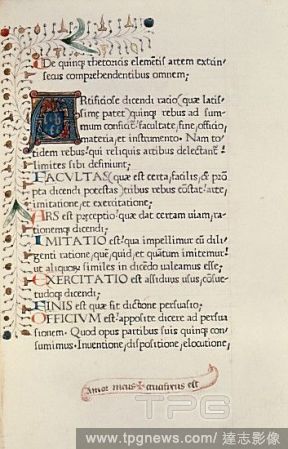 De quinqz rhetoricis elemētis artem extrin
secus comprehendentibus omnem;
ARtificiose dicendi ratio (quæ latis
sime patet) quinqz rebus ad sum
mum conficit: facultate, fine, officio,
materia, et instrumento. Nam to
tidem rebus: qui reliquis artibus delectant:
limites sibi definiunt;
FACVLTAS (quæ est certa, facilis, & prō
pta dicendi potestas) tribus rebus cōstat: arte,
imitatione, et exercitatione;
ARS est præceptio: quæ dat certam uiam, ra-
tionemqz dicendi;
IMITATIO est: qua impellimur cū dili
genti ratione, quē, quid, et quātum imitemur:
ut aliquoȝ similes in dicēdo ualeamus esse;
EXERCITATIO est assiduus usus, cōsue-
tudoqz dicendi;
FINIS est quæ fit dictione persuasio;
OFFICIVM est: apposite dicere ad persua
sionem. Quod opus partibus suis quinqz con-
sumimus. Inuentione, dispositione, elocutione,
Amor meus + crucifixus est
TPG
www.tpgnews.com / 達志影像